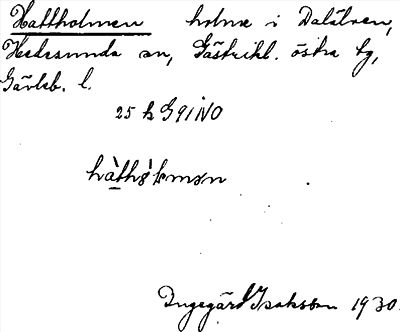 Hattholmen holme i Dalälven,
Hedesunda sn, Gästrikl. östra tg,
Gävleb. l.
25 h G91NO
Ingegärd Isaksson 1930.